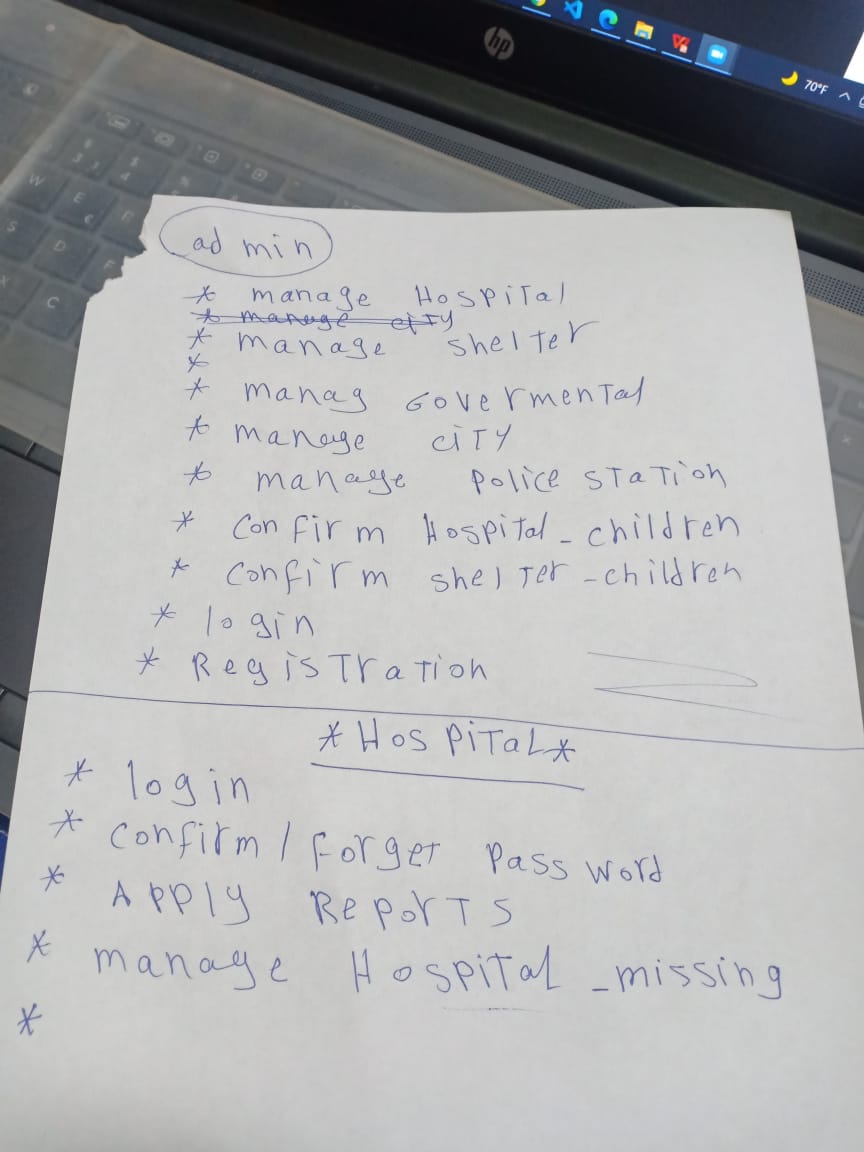 hp
70°F
admin
* manage Hospital
* manage city
* manage shelter
*
* manag Govermental
* manage city
* manage police station
* Confirm Hospital_children
* Confirm shelter-children
* login
* Registration
* Hospital *
* login
* Confirm / Forget Password
* Apply Reports
* manage Hospital_missing
*